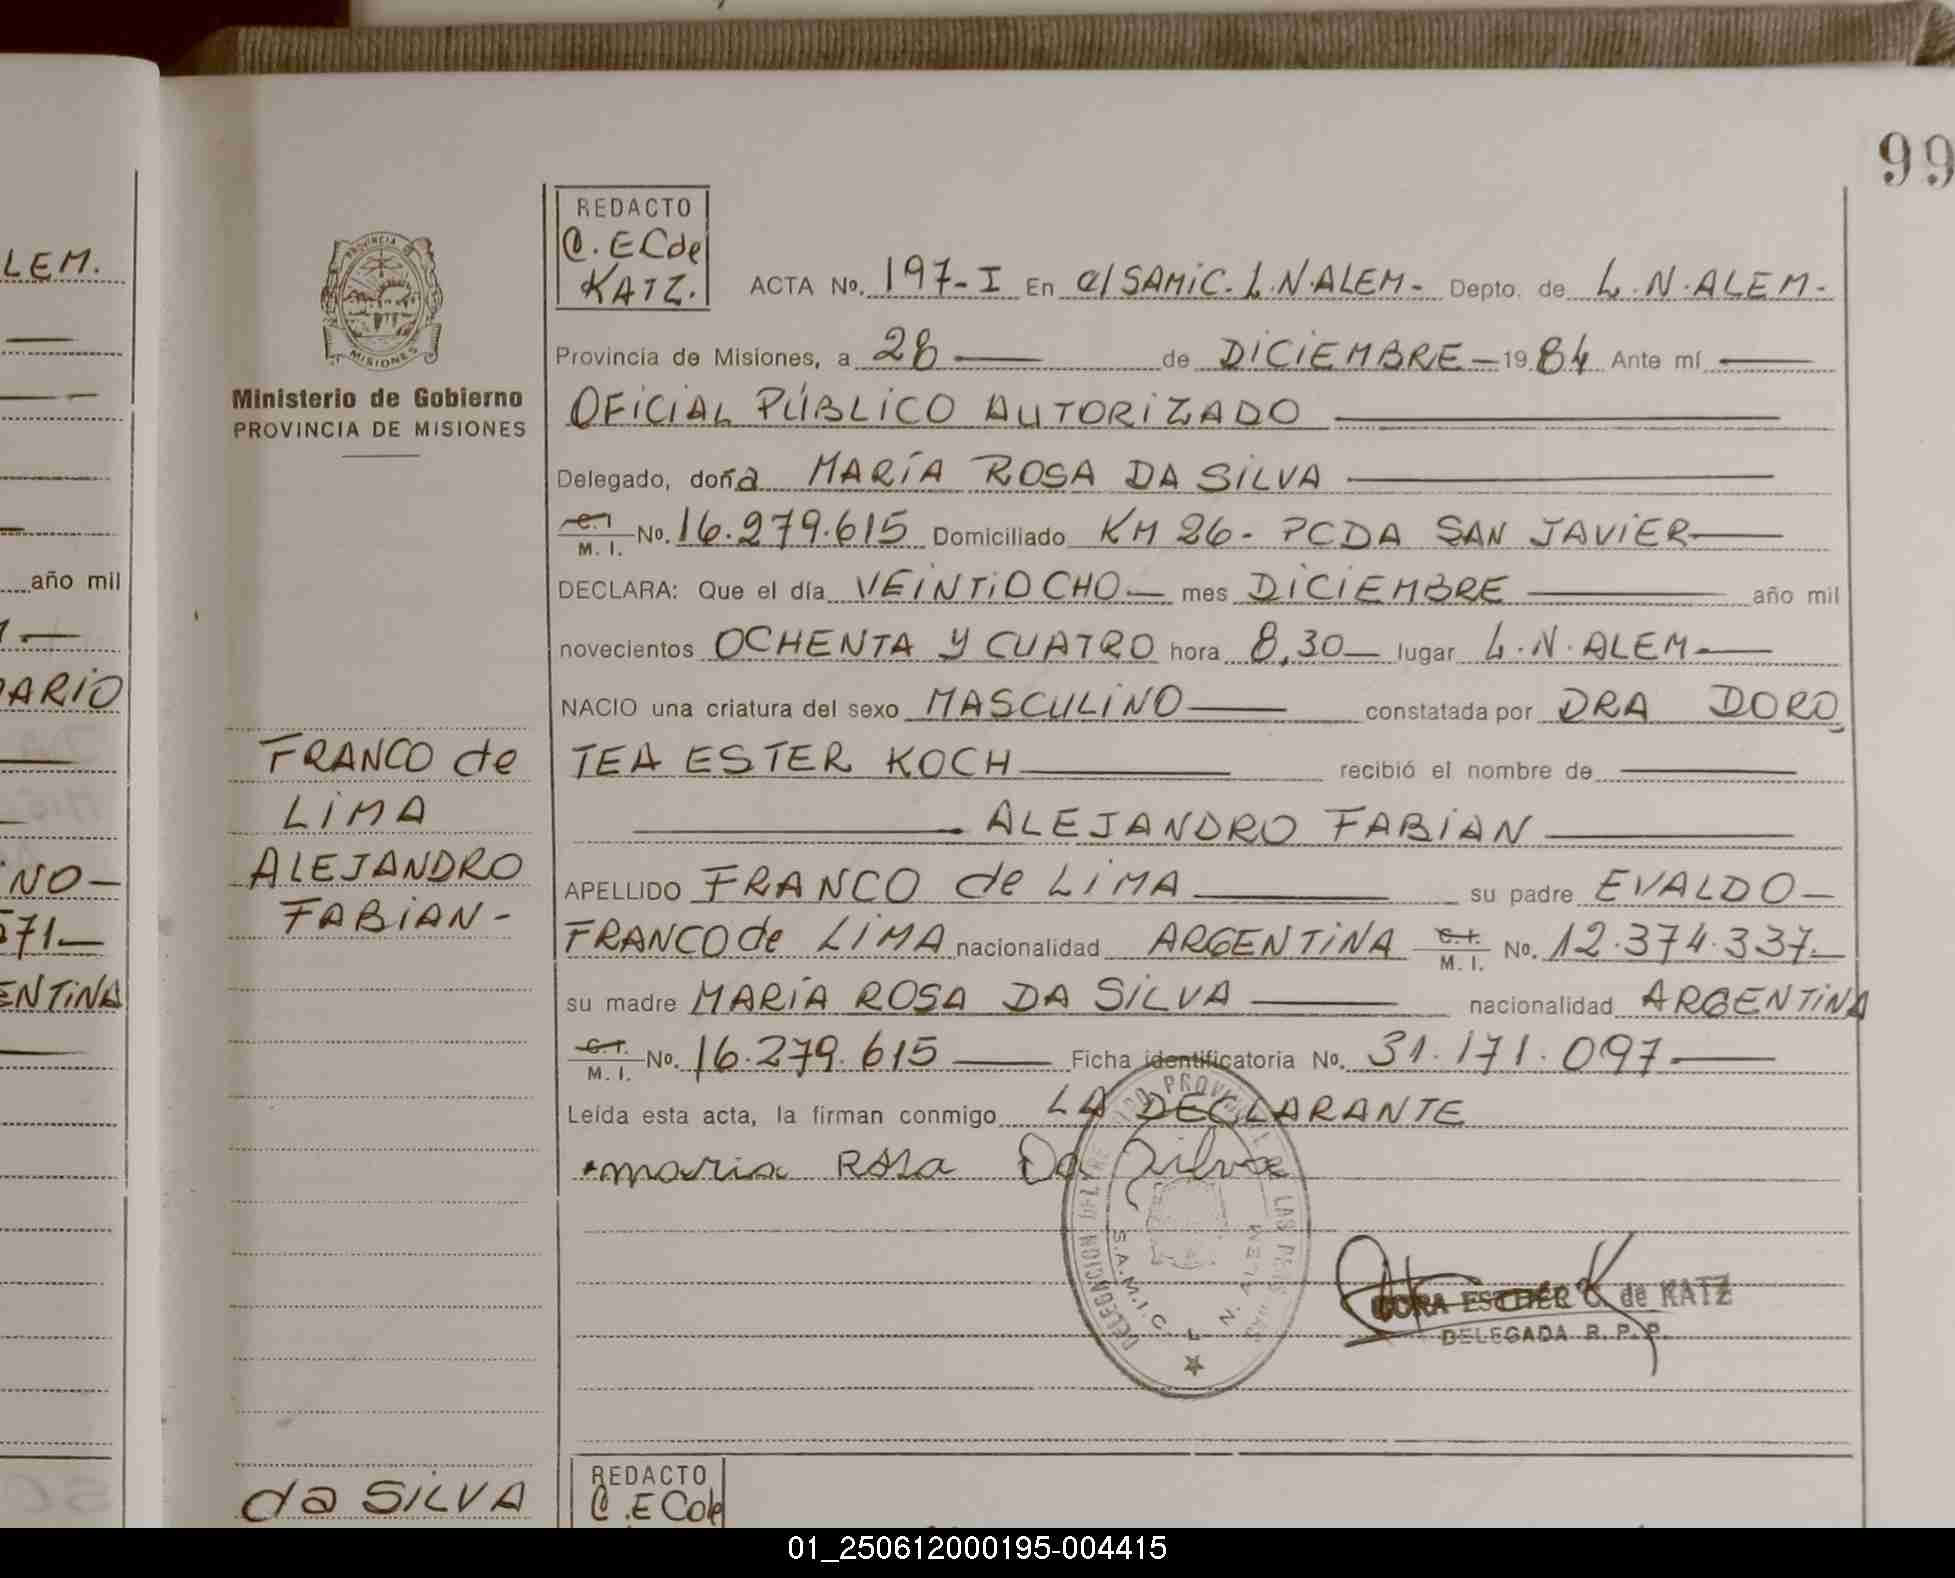 99
LEM.
año mil
ARIO
NO-
571-
ENTINA
PROVINCIA DE
MISIONES
Ministerio de Gobierno
PROVINCIA DE MISIONES
FRANCO de
LIMA
ALEJANDRO
FABIAN-
REDACTO
C. EC de
KATZ.
ACTA No. 197-I En el SAMIC. L.N.ALEM- Depto. de L.N.ALEM-
Provincia de Misiones, a 28 de DICIEMBRE - 1984 Ante mí
OFICIAL PÚBLICO AUTORIZADO
Delegado, doña MARÍA ROSA DA SILVA
C.I. M. I. No. 16.279.615 Domiciliado KM 26- PCDA SAN JAVIER
DECLARA: Que el día VEINTIOCHO mes DICIEMBRE año mil
novecientos OCHENTA Y CUATRO hora 8,30 lugar L.N.ALEM
NACIO una criatura del sexo MASCULINO constatada por DRA DORO
TEA ESTER KOCH recibió el nombre de
ALEJANDRO FABIAN
APELLIDO FRANCO de LIMA su padre EVALDO
FRANCO de LIMA nacionalidad ARGENTINA C.I. M. I. No. 12.374.337
su madre MARÍA ROSA DA SILVA nacionalidad ARGENTINA
C.I. M. I. No. 16.279.615 Ficha identificatoria No. 31.171.097
Leída esta acta, la firman conmigo LA DECLARANTE
maria Rosa Da Silva
DELEGACION DEL PROVINCIAL LAS PERSONAS
S.A.M.I.C. L. N. ALEM
CORA ESTHER C. de KATZ
DELEGADA R. P. P.
da SILVA
REDACTO
C. EC de
01_250612000195-004415